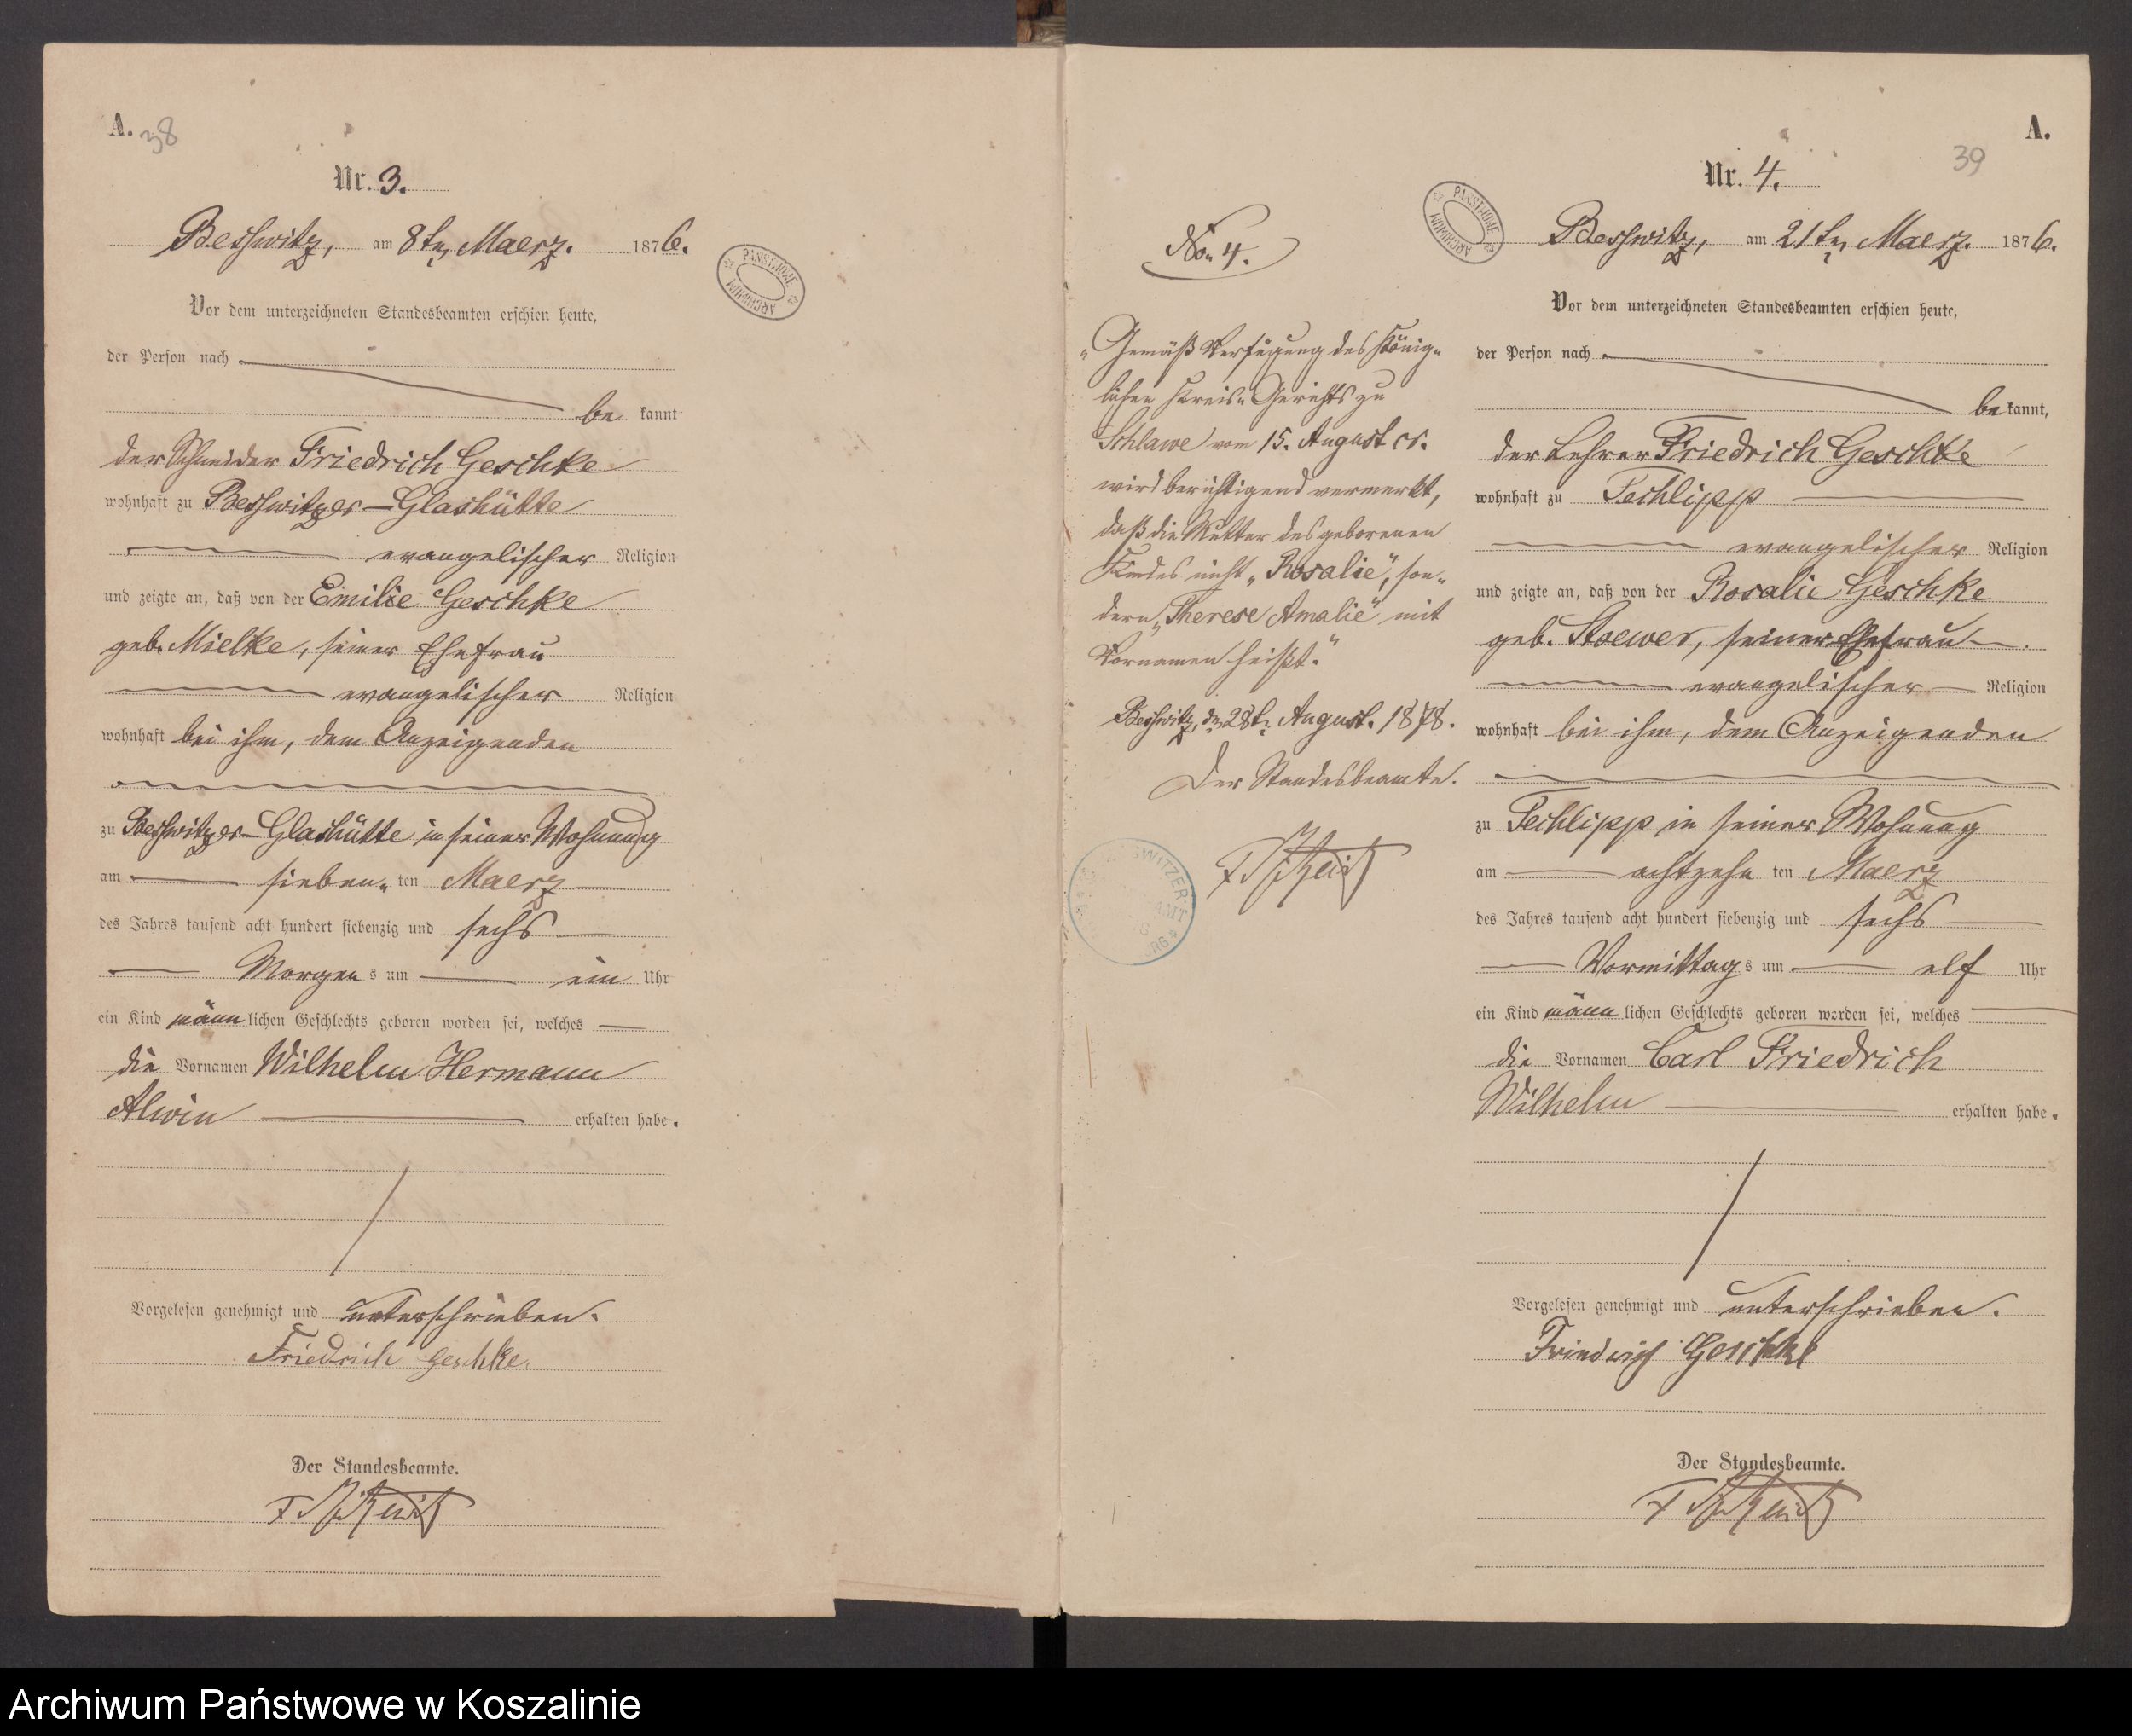 A. 38
Nr. 3.
Besswitz, am 8ten Maerz. 1876.
PANSTWOWE ARCHIWUM
Vor dem unterzeichneten Standesbeamten erschien heute,
der Person nach
be kannt
der Schneider Friedrich Geschke
wohnhaft zu Besswitzer-Glashütte
evangelischer Religion
und zeigte an, daß von der Emilie Geschke
geb. Mielke, seiner Ehefrau
evangelischer Religion
wohnhaft bei ihm, dem Anzeigenden
zu Besswitzer-Glashütte in seiner Wohnung
am sieben- ten Maerz
des Jahres tausend acht hundert siebenzig und sechs
Morgen s um ein Uhr
ein Kind männ lichen Geschlechts geboren worden sei, welches
die Vornamen Wilhelm Hermann
Alwin erhalten habe.
Vorgelesen genehmigt und unterschrieben.
Friedrich Geschke.
Der Standesbeamte.
No. 4.
"Gemäß Verfügung des König-
lichen Kreis-Gerichts zu
Schlawe vom 15. August cr.
wird berichtigend vermerkt,
daß die Mutter des geborenen
Kindes nicht "Rosalie", son-
dern "Therese Amalie" mit
Vornamen heißt."
Besswitz, den 28t. August. 1878.
Der Standesbeamte.
A.
39
Nr. 4.
PANSTWOWE ARCHIWUM
Besswitz, am 21ten Maerz. 1876.
Vor dem unterzeichneten Standesbeamten erschien heute,
der Person nach
be kannt,
der Lehrer Friedrich Geschke
wohnhaft zu Techlipp
evangelischer Religion
und zeigte an, daß von der Rosalie Geschke
geb. Stoewer, seiner Ehefrau
evangelischer Religion
wohnhaft bei ihm, dem Anzeigenden
zu Techlipp in seiner Wohnung
am achtzehn ten Maerz
des Jahres tausend acht hundert siebenzig und sechs
Vormittag s um elf Uhr
ein Kind männ lichen Geschlechts geboren worden sei, welches
die Vornamen Carl Friedrich
Wilhelm erhalten habe.
Vorgelesen genehmigt und unterschrieben.
Friedrich Geschke
Der Standesbeamte.
Archiwum Państwowe w Koszalinie